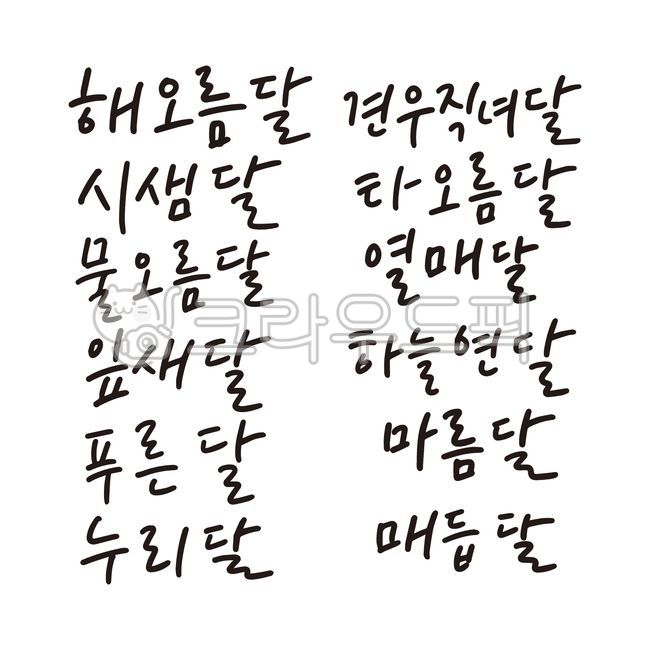 해오름달
시샘달
물오름달
잎새달
푸른달
누리달
견우직녀달
타오름달
열매달
하늘연달
마름달
매듭달
크라우드픽